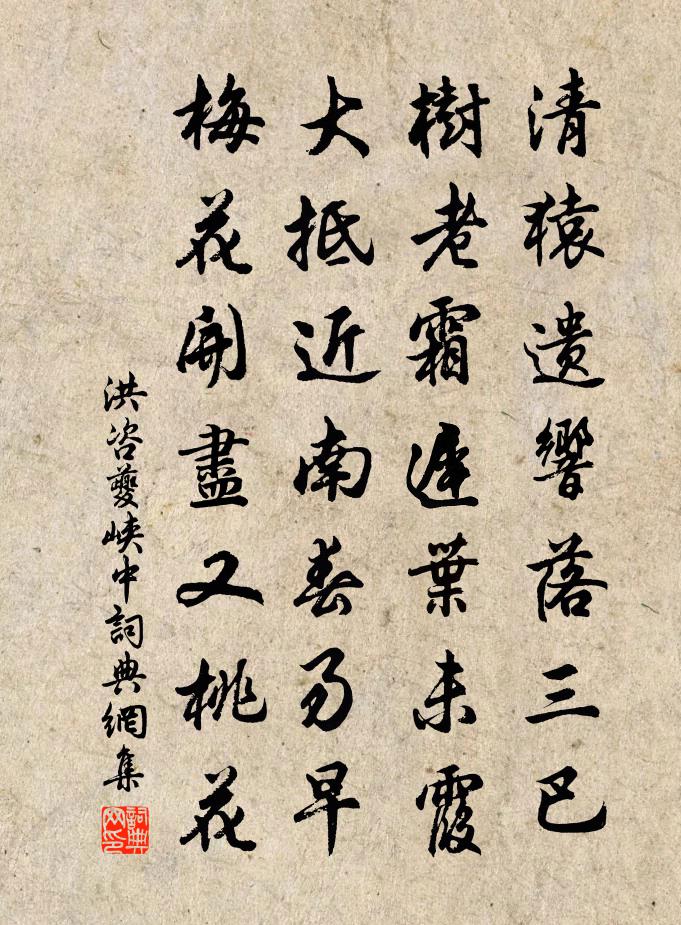 清猿遺響落三巴
樹老霜遲葉未霞
大抵近南春易早
梅花開盡又桃花
洪咨夔峽中詞典網集
詞典
网印